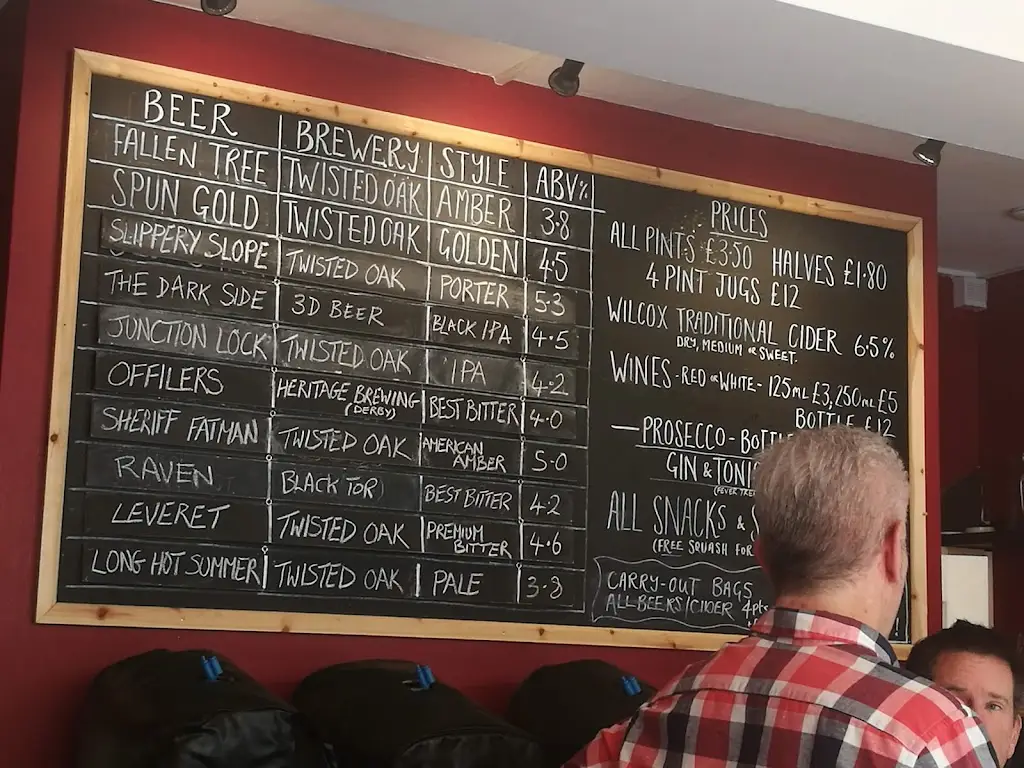 BEER BREWERY STYLE ABV%
FALLEN TREE TWISTED OAK AMBER 3.8
SPUN GOLD TWISTED OAK GOLDEN 4.5
SLIPPERY SLOPE TWISTED OAK PORTER 5.3
THE DARK SIDE 3D BEER BLACK IPA 4.5
JUNCTION LOCK TWISTED OAK IPA 4.2
OFFILERS HERITAGE BREWING (DERBY) BEST BITTER 4.0
SHERIFF FATMAN TWISTED OAK AMERICAN AMBER 5.0
RAVEN BLACK TOR BEST BITTER 4.2
LEVERET TWISTED OAK PREMIUM BITTER 4.6
LONG HOT SUMMER TWISTED OAK PALE 3.8
PRICES
ALL PINTS £3.50 HALVES £1.80
4 PINT JUGS £12
WILCOX TRADITIONAL CIDER 6.5%
DRY, MEDIUM or SWEET.
WINES - RED or WHITE - 125ml £3, 250ml £5
BOTTLE £12
PROSECCO - BOTTLE
GIN & TONIC
(FEVER
ALL SNACKS &
(FREE SQUASH FOR
CARRY-OUT BAGS
ALL BEERS/CIDER 4pts